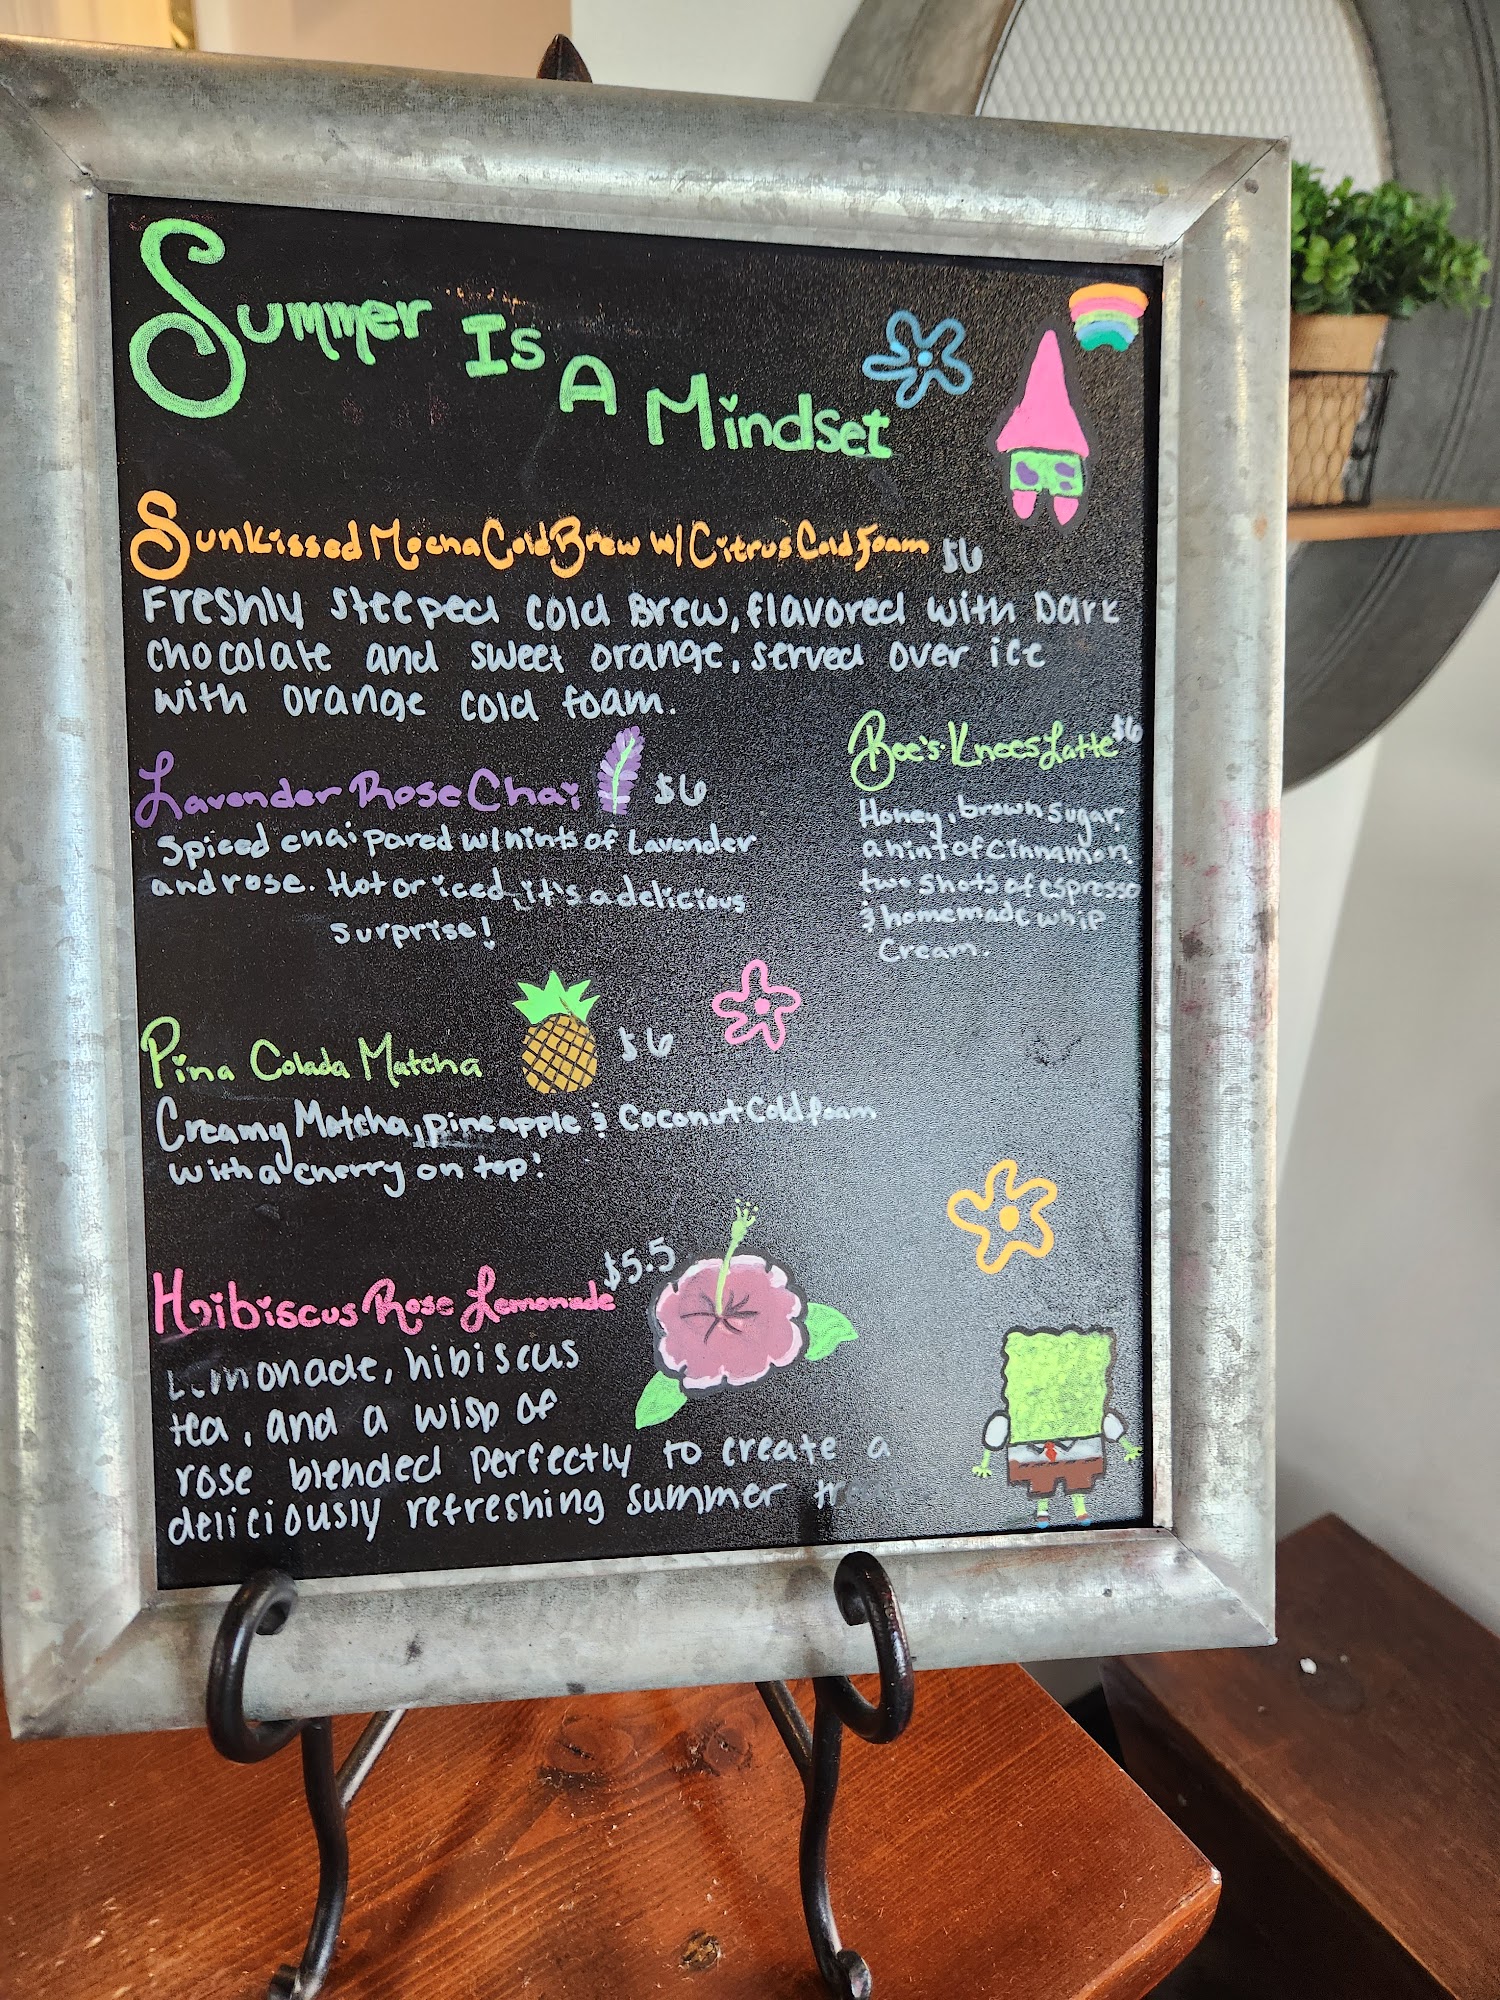 Summer Is A Mindset
Sunkissed Mocha Cold Brew w/ Citrus Cold Foam $6
Freshly steeped cold Brew, flavored with Dark
chocolate and sweet orange, served over ice
with orange cold foam.
Lavender Rose Chai $6
Spiced chai pared w/ hints of Lavender
and rose. Hot or iced, it's a delicious
surprise!
Bee's Knees Latte $6
Honey, brown sugar,
a hint of cinnamon,
two shots of espresso
& homemade whip
cream.
Pina Colada Matcha $6
Creamy Matcha, pineapple & Coconut Cold foam
with a cherry on top!
Hibiscus Rose Lemonade $5.5
Lemonade, hibiscus
tea, and a wisp of
rose blended perfectly to create a
deliciously refreshing summer